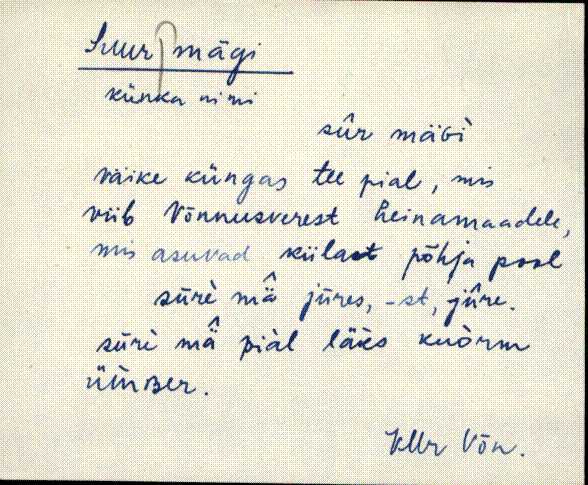 Suur mägi
künka nimi
sûr mäGì
väike küngas tee pial, mis
viib Võnnusverest heinamaadele,
mis asuvad külast põhja pool
sūrè mä̂ jūres, -st, jū̂re.
sūrè mä̂ piàl läks kuòrm
ümBer.
KMr Võn.